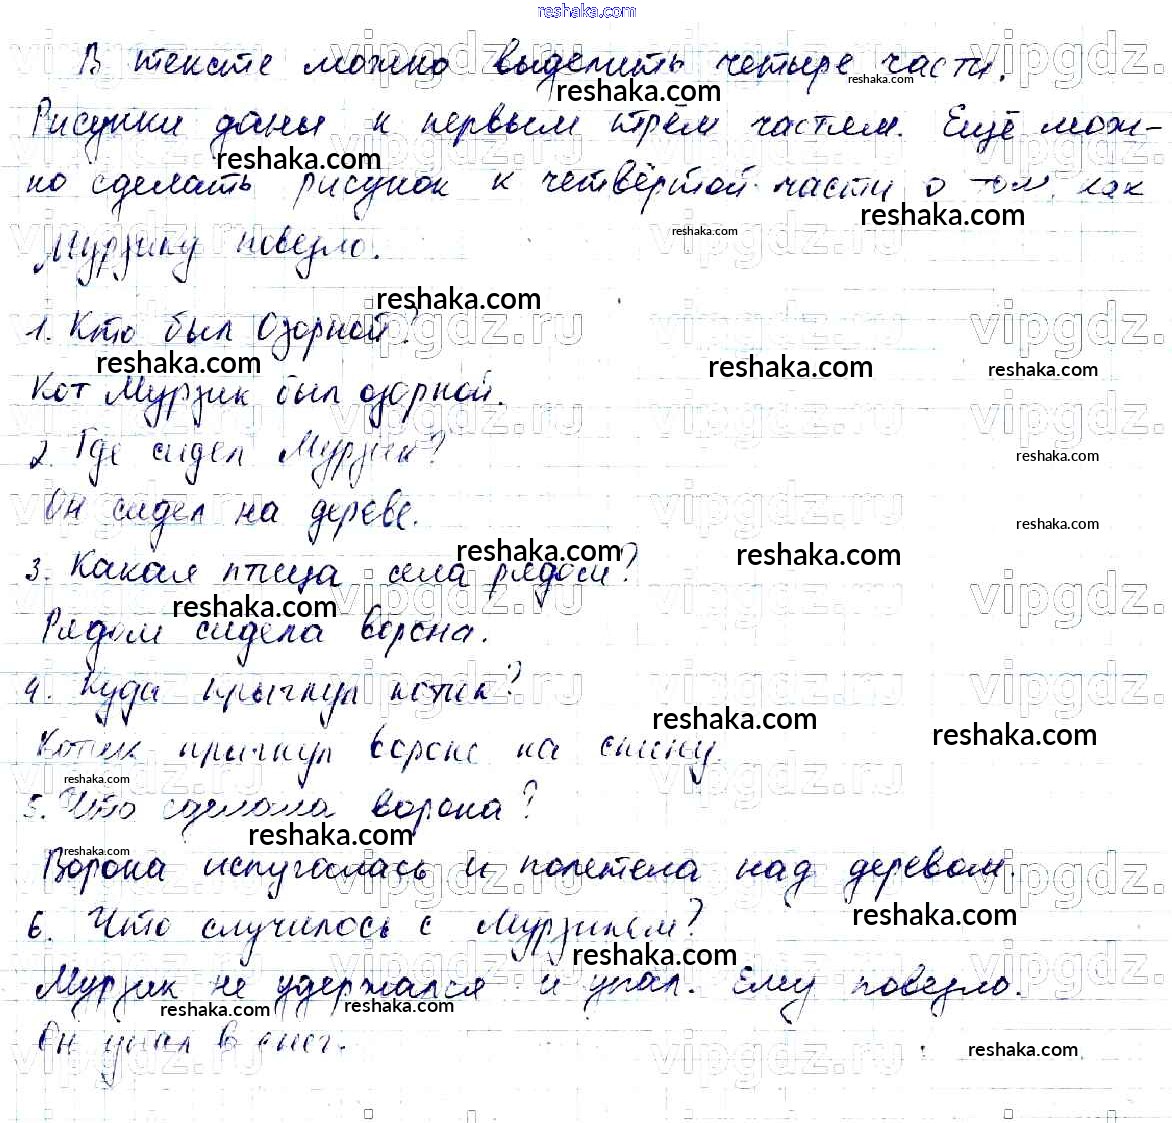 reshaka.com
В тексте можно выделить четыре части.
Рисунки даны к первым трём частям. Ещё мож-
но сделать рисунок к четвёртой части о том, как
Мурзику повезло.
1. Кто был Озорной?
Кот Мурзик был озорной.
2. Где сидел Мурзик?
Он сидел на дереве.
3. Какая птица села рядом?
Рядом сидела ворона.
4. Куда прыгнул котик?
Котик прыгнул вороне на спину.
5. Что сделала ворона?
Ворона испугалась и полетела над деревом.
6. Что случилось с Мурзиком?
Мурзик не удержался и упал. Ему повезло.
Он упал в снег.